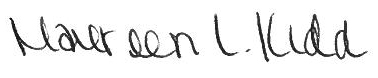 Maureen L. Kidd